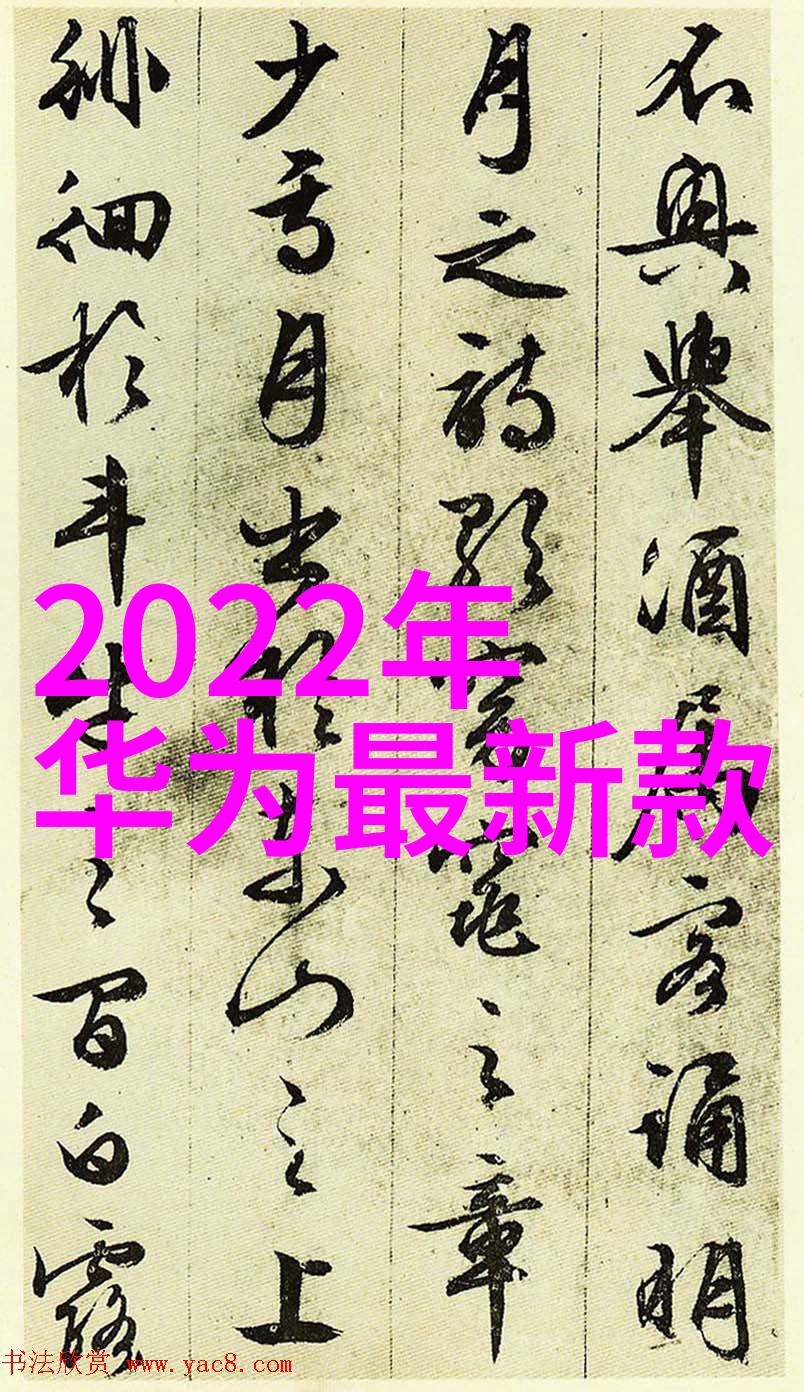 不興舉酒屬客誦明
月之詩歌窈窕之章
少焉月出於東山之上
徘徊於斗牛之間白露
2022年
华为最新款
书法欣赏 www.yac8.com